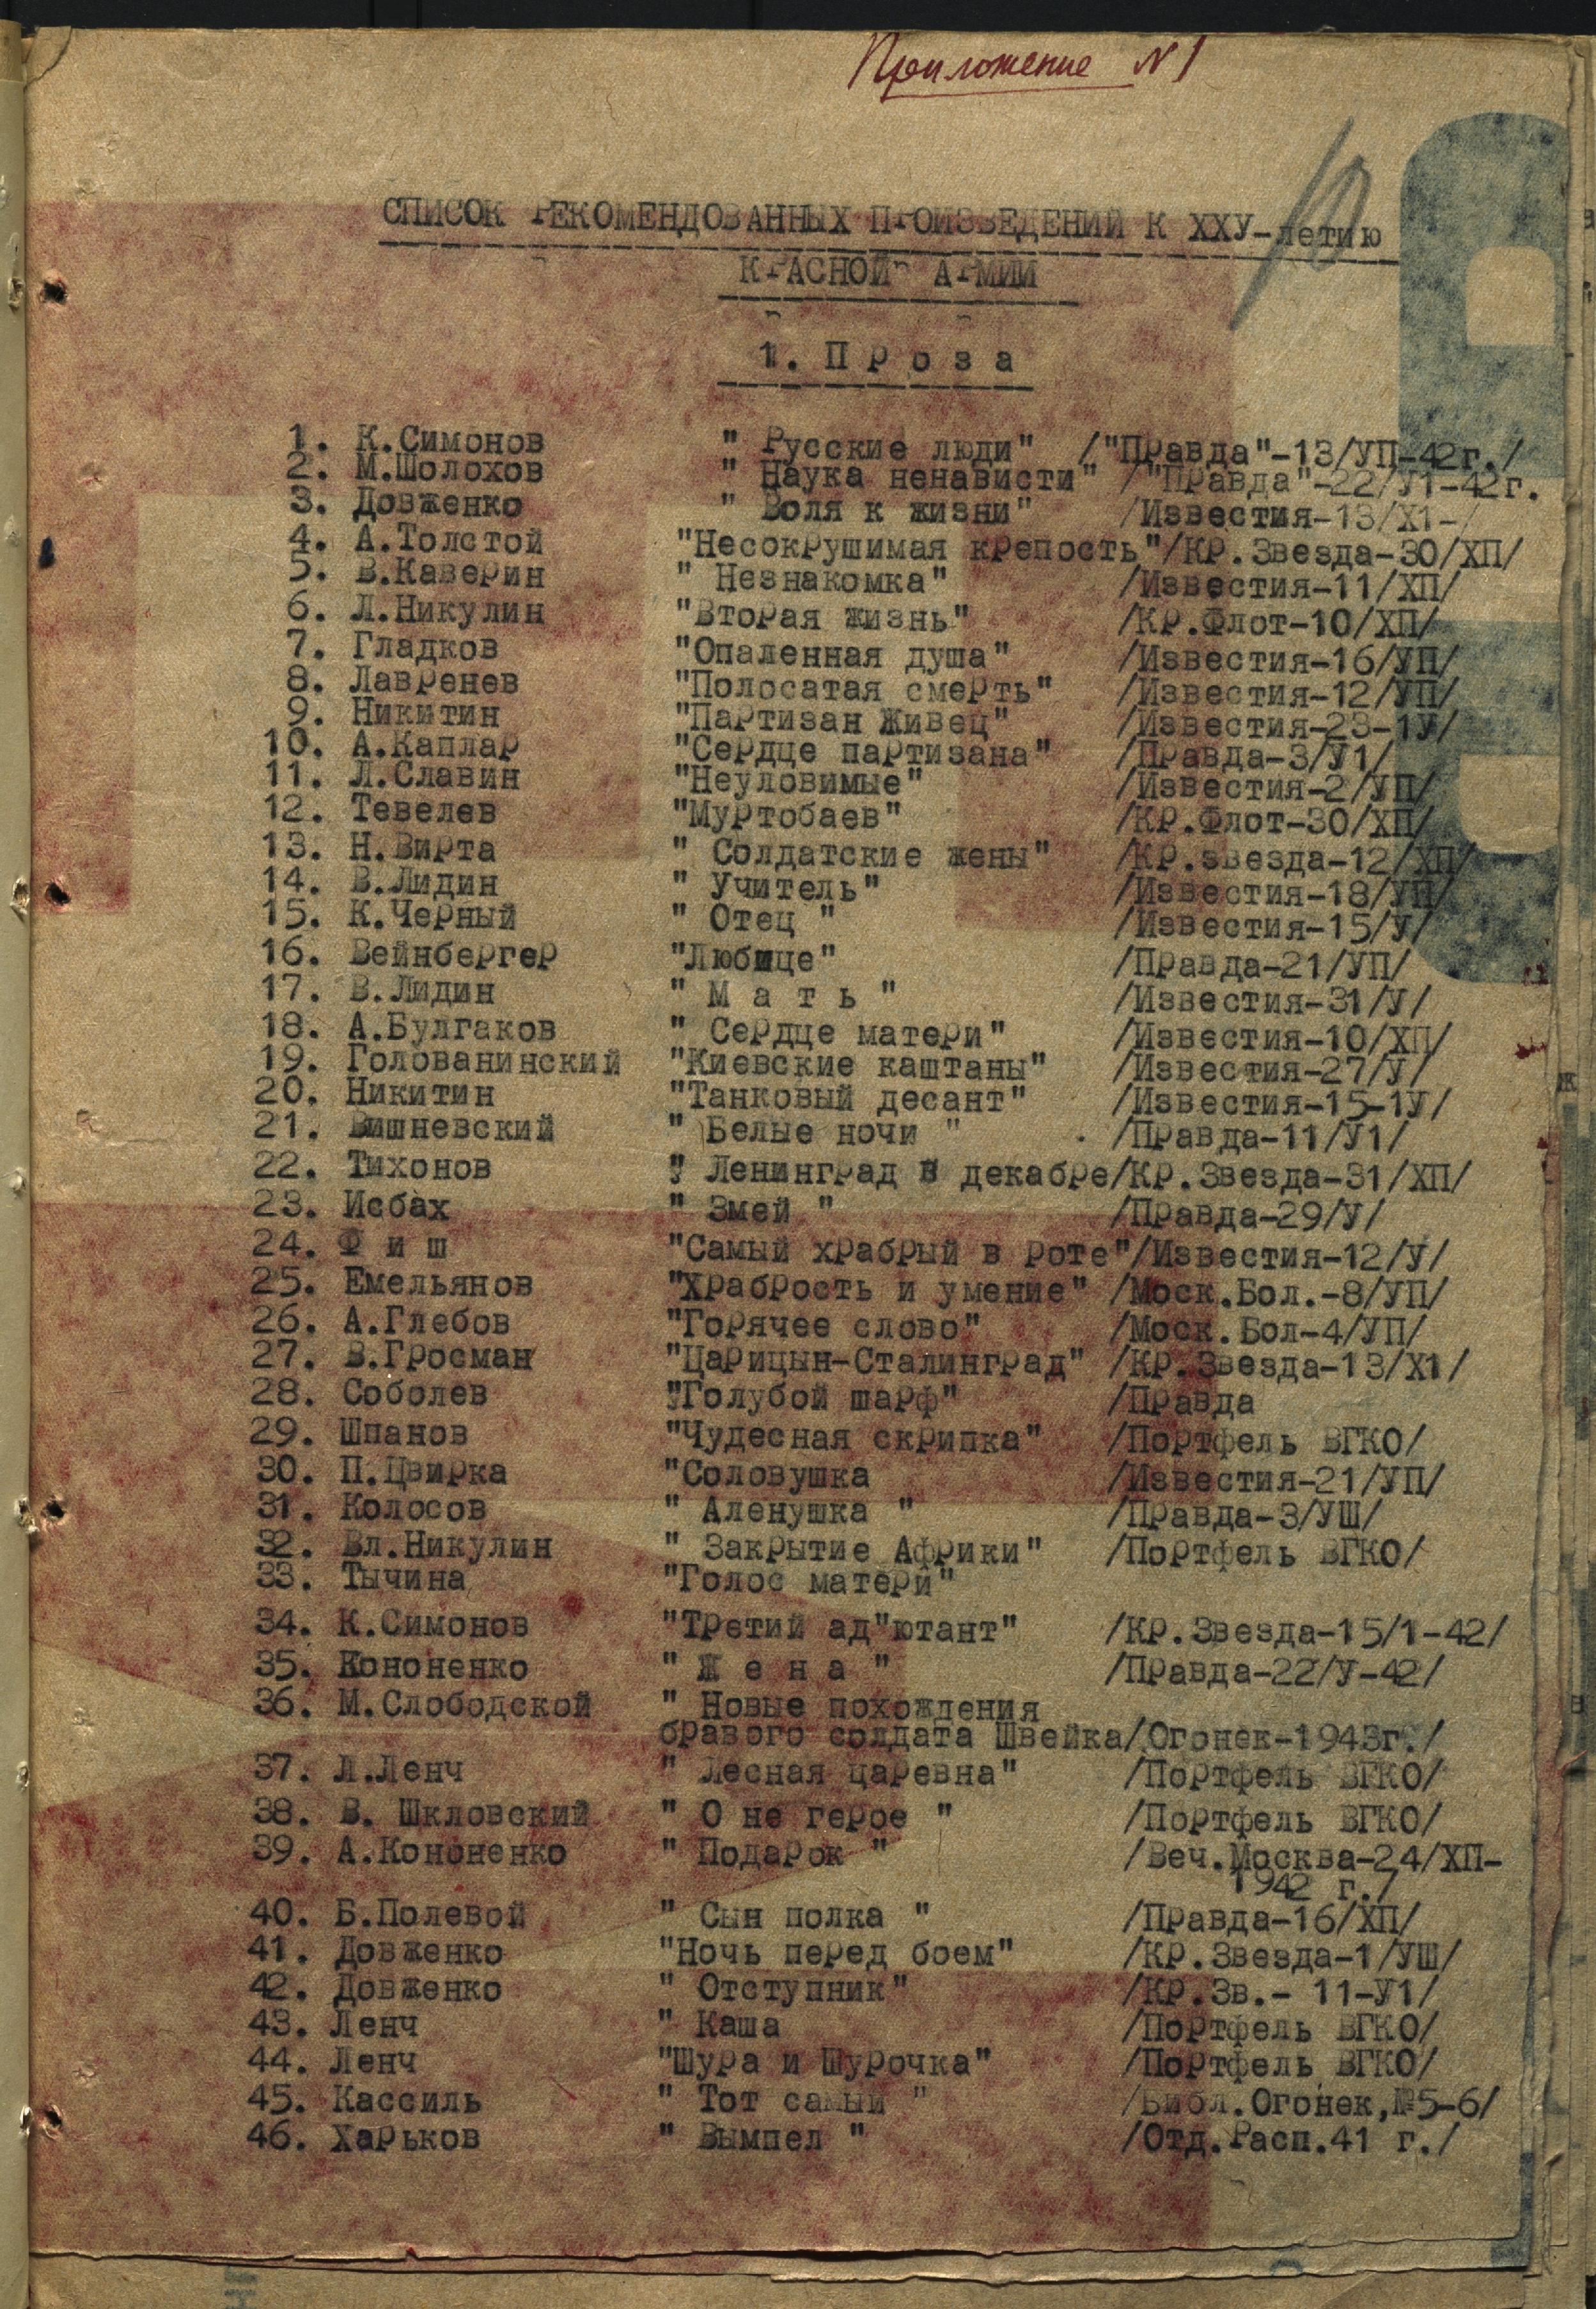 Приложение N1
10
СПИСОК РЕКОМЕНДОВАННЫХ ПРОИЗВЕДЕНИЙ К ХХУ-летию
КРАСНОЙ АРМИИ
1. П р о з а
1. К.Симонов " Русские люди" /"Правда"-13/УП-42г./
2. М.Шолохов " Наука ненависти" /"Правда"-22/У1-42г.
3. Довженко " Воля к жизни" /Известия-13/Х1-/
4. А.Толстой "Несокрушимая крепость"/Кр.Звезда-30/ХП/
5. В.Каверин " Незнакомка" /Известия-11/ХП/
6. Л.Никулин "Вторая жизнь" /Кр.Флот-10/ХП/
7. Гладков "Опаленная душа" /Известия-16/УП/
8. Лавренев "Полосатая смерть" /Известия-12/УП/
9. Никитин "Партизан Живец" /Известия-23-1У/
10. А.Каплар "Сердце партизана" /Правда-3/У1/
11. Л.Славин "Неуловимые" /Известия-2/УП/
12. Тевелев "Муртобаев" /Кр.Флот-30/ХП/
13. Н.Вирта " Солдатские жены" /Кр.звезда-12/ХП/
14. В.Лидин " Учитель" /Известия-18/УП/
15. К.Черный " Отец " /Известия-15/У/
16. Вейнбергер "Любице" /Правда-21/УП/
17. В.Лидин " М а т ь " /Известия-31/У/
18. А.Булгаков " Сердце матери" /Известия-10/ХП/
19. Голованинский "Киевские каштаны" /Известия-27/У/
20. Никитин "Танковый десант" /Известия-15-1У/
21. Вишневский " Белые ночи " /Правда-11/У1/
22. Тихонов " Ленинград в декабре/Кр.Звезда-31/ХП/
23. Исбах " Змей " /Правда-29/У/
24. Ф и ш "Самый храбрый в роте"/Известия-12/У/
25. Емельянов "Храбрость и умение" /Моск.Бол.-8/УП/
26. А.Глебов "Горячее слово" /Моск.Бол-4/УП/
27. В.Гросман "Царицын-Сталинград" /Кр.Звезда-13/Х1/
28. Соболев "Голубой шарф" /Правда
29. Шпанов "Чудесная скрипка" /Портфель ВГКО/
30. П.Цвирка "Соловушка /Известия-21/УП/
31. Колосов " Аленушка " /Правда-3/УШ/
32. Вл.Никулин " Закрытие Африки" /Портфель ВГКО/
33. Тычина "Голос матери"
34. К.Симонов "Третий ад"ютант" /Кр.Звезда-15/1-42/
35. Кононенко " Ж е н а " /Правда-22/У-42/
36. М.Слободской " Новые похождения
бравого солдата Швейка/Огонек-1943г./
37. Л.Ленч " Лесная царевна" /Портфель ВГКО/
38. В. Шкловский " О не герое " /Портфель ВГКО/
39. А.Кононенко " Подарок " /Веч.Москва-24/ХП-
1942 г./
40. Б.Полевой " Сын полка " /Правда-16/ХП/
41. Довженко "Ночь перед боем" /Кр.Звезда-1/УШ/
42. Довженко " Отступник" /Кр.Зв.- 11-У1/
43. Ленч " Каша /Портфель ВГКО/
44. Ленч "Шура и Шурочка" /Портфель ВГКО/
45. Кассиль " Тот самый " /Библ.Огонек,№5-6/
46. Харьков " Вымпел " /Отд.Расп.41 г./